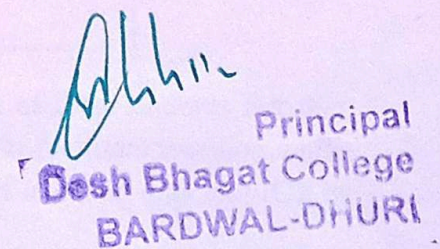 Principal
Desh Bhagat College
BARDWAL-DHURI